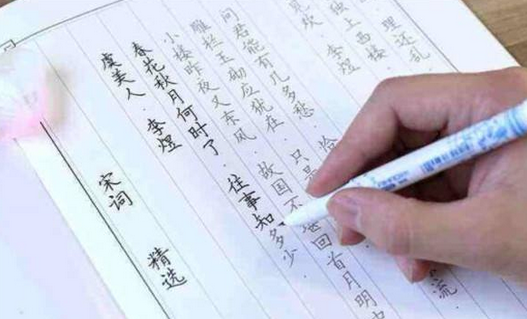 宋词 精选
虞美人·李煜
春花秋月何时了·往事知多少
小楼昨夜又东风·故国不堪回首月明中
雕栏玉砌应犹在·只
问君能有几多愁·恰 流
见欢·李煜
独上西楼
理还乱